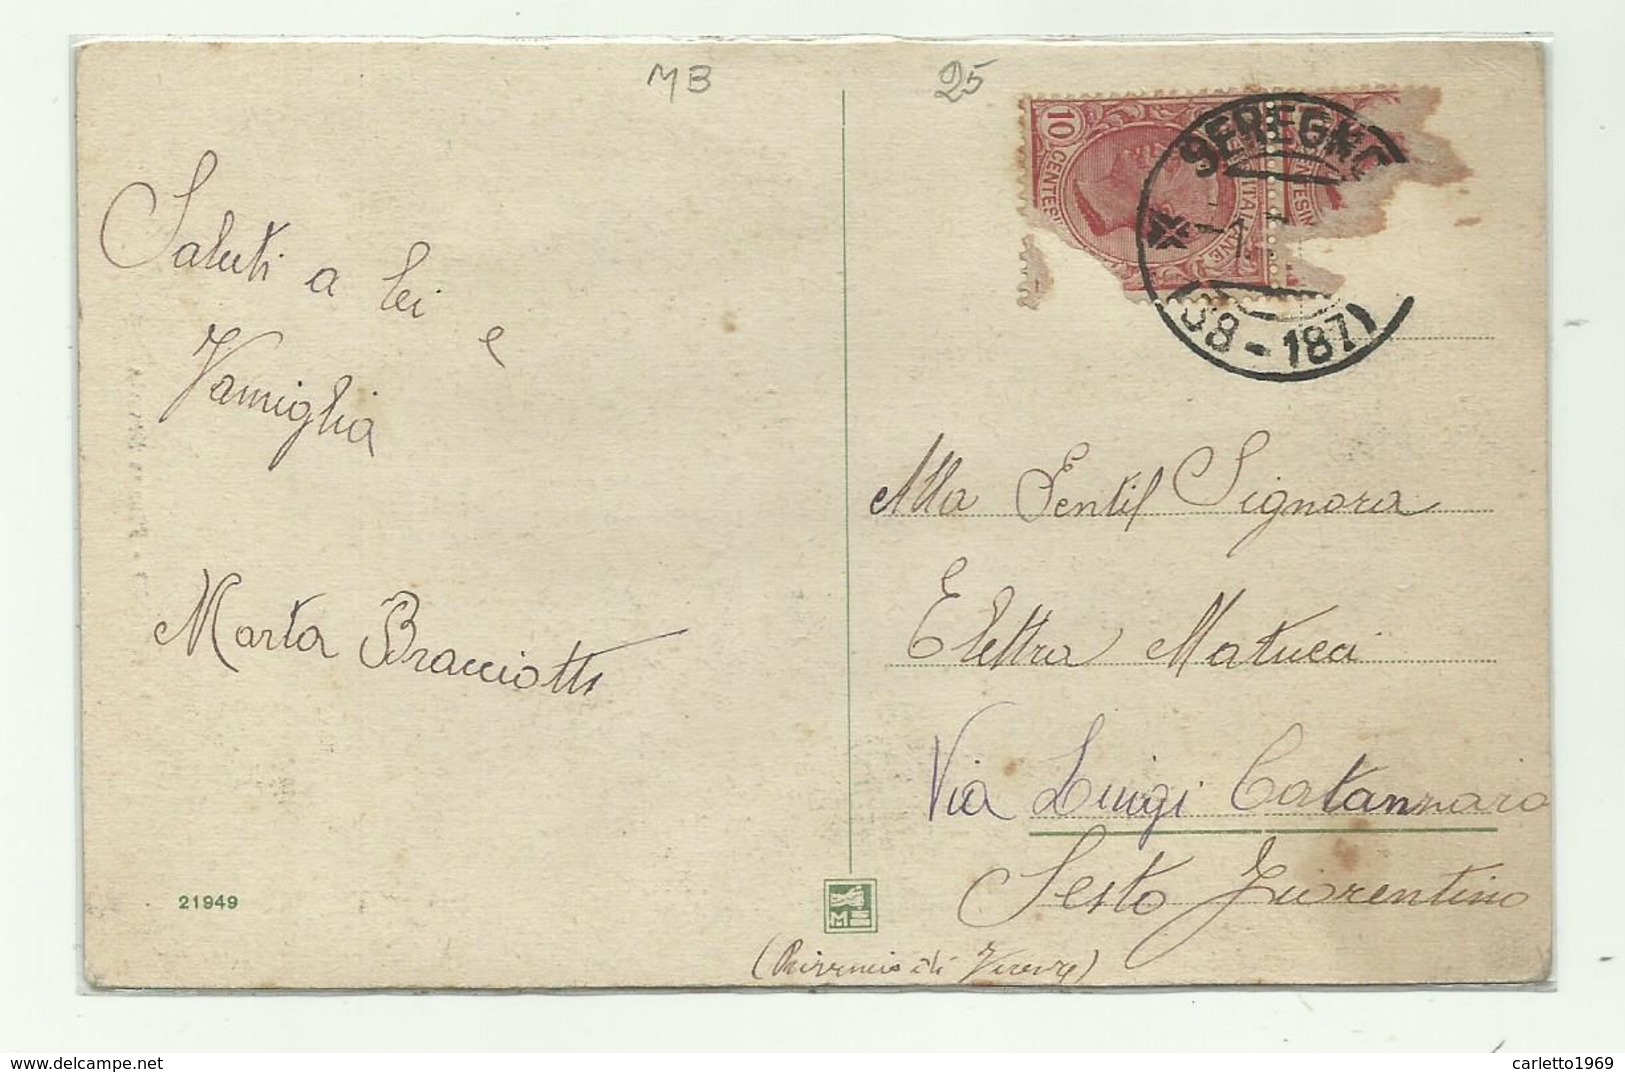 MB
25
10
CENTESI
SEREGNO
(38-187)
Saluti a lei
e
Famiglia
Marta Bracciotti
Alla Gentil Signora
Elettra Matucci
Via Luigi Catannaro
Sesto Fiorentino
(Provincia di Firenze)
21949
carletto1969